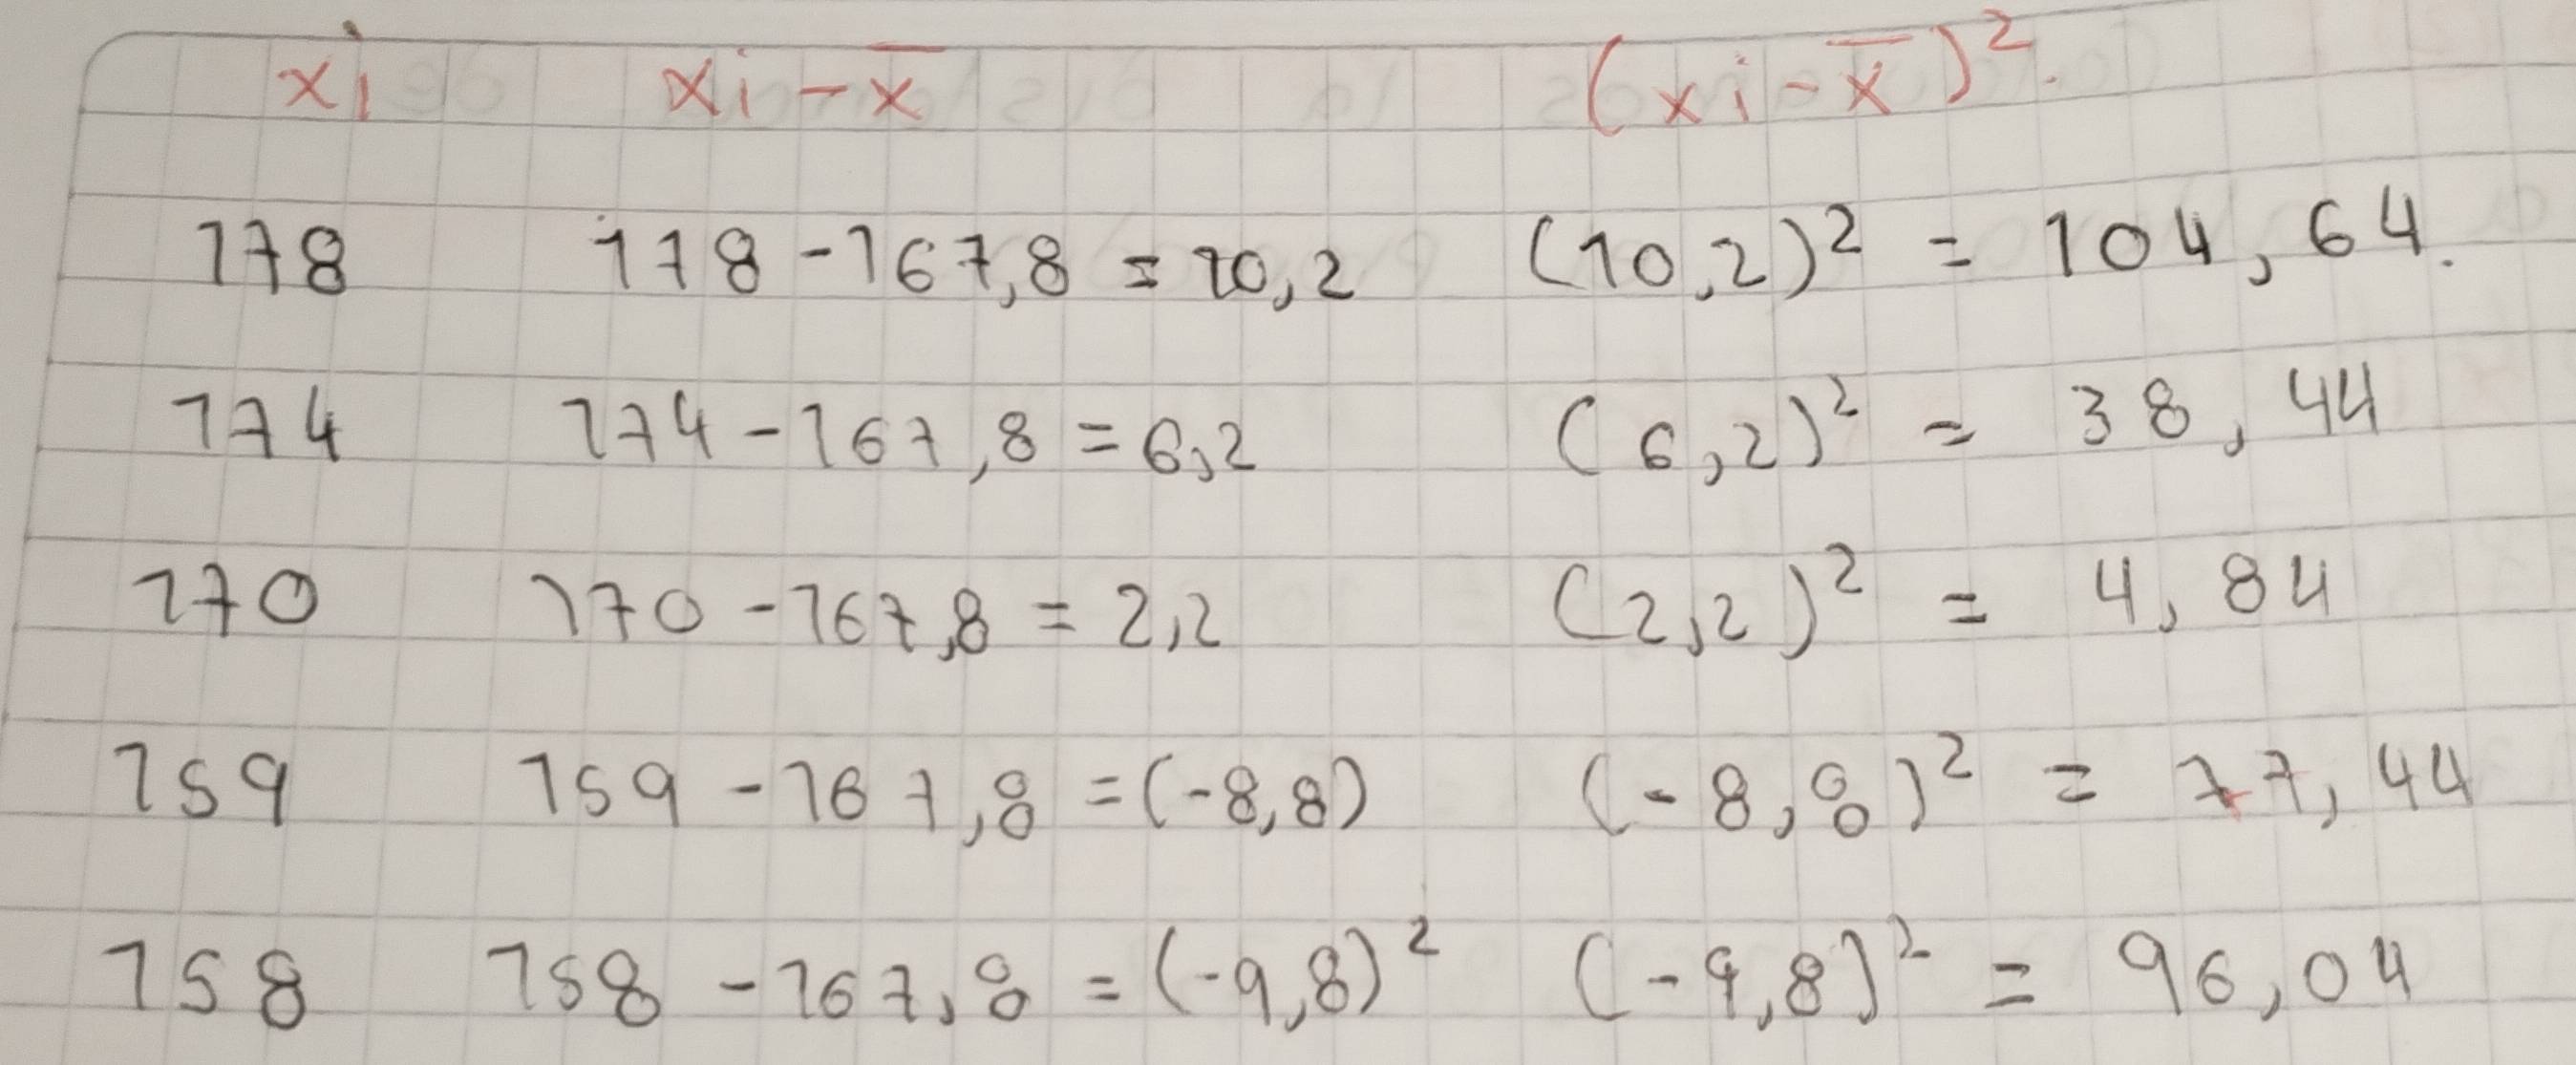 xi xi - x̄ (xi - x̄)².
178 178 - 167,8 = 10,2 (10,2)² = 104,64.
174 174 - 167,8 = 6,2 (6,2)² = 38,44
170 170 - 167,8 = 2,2 (2,2)² = 4,84
159 159 - 167,8 = (-8,8) (-8,8)² = 77,44
158 158 - 167,8 = (-9,8)² (-9,8)² = 96,04